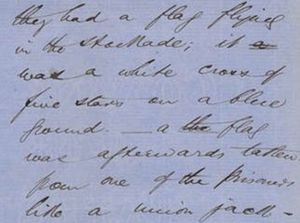 they had a flag flying
in the stockade; it a
was a white cross of
five stars on a blue
ground. — a the flag
was afterwards taken
from one of the prisoners
like a union jack —